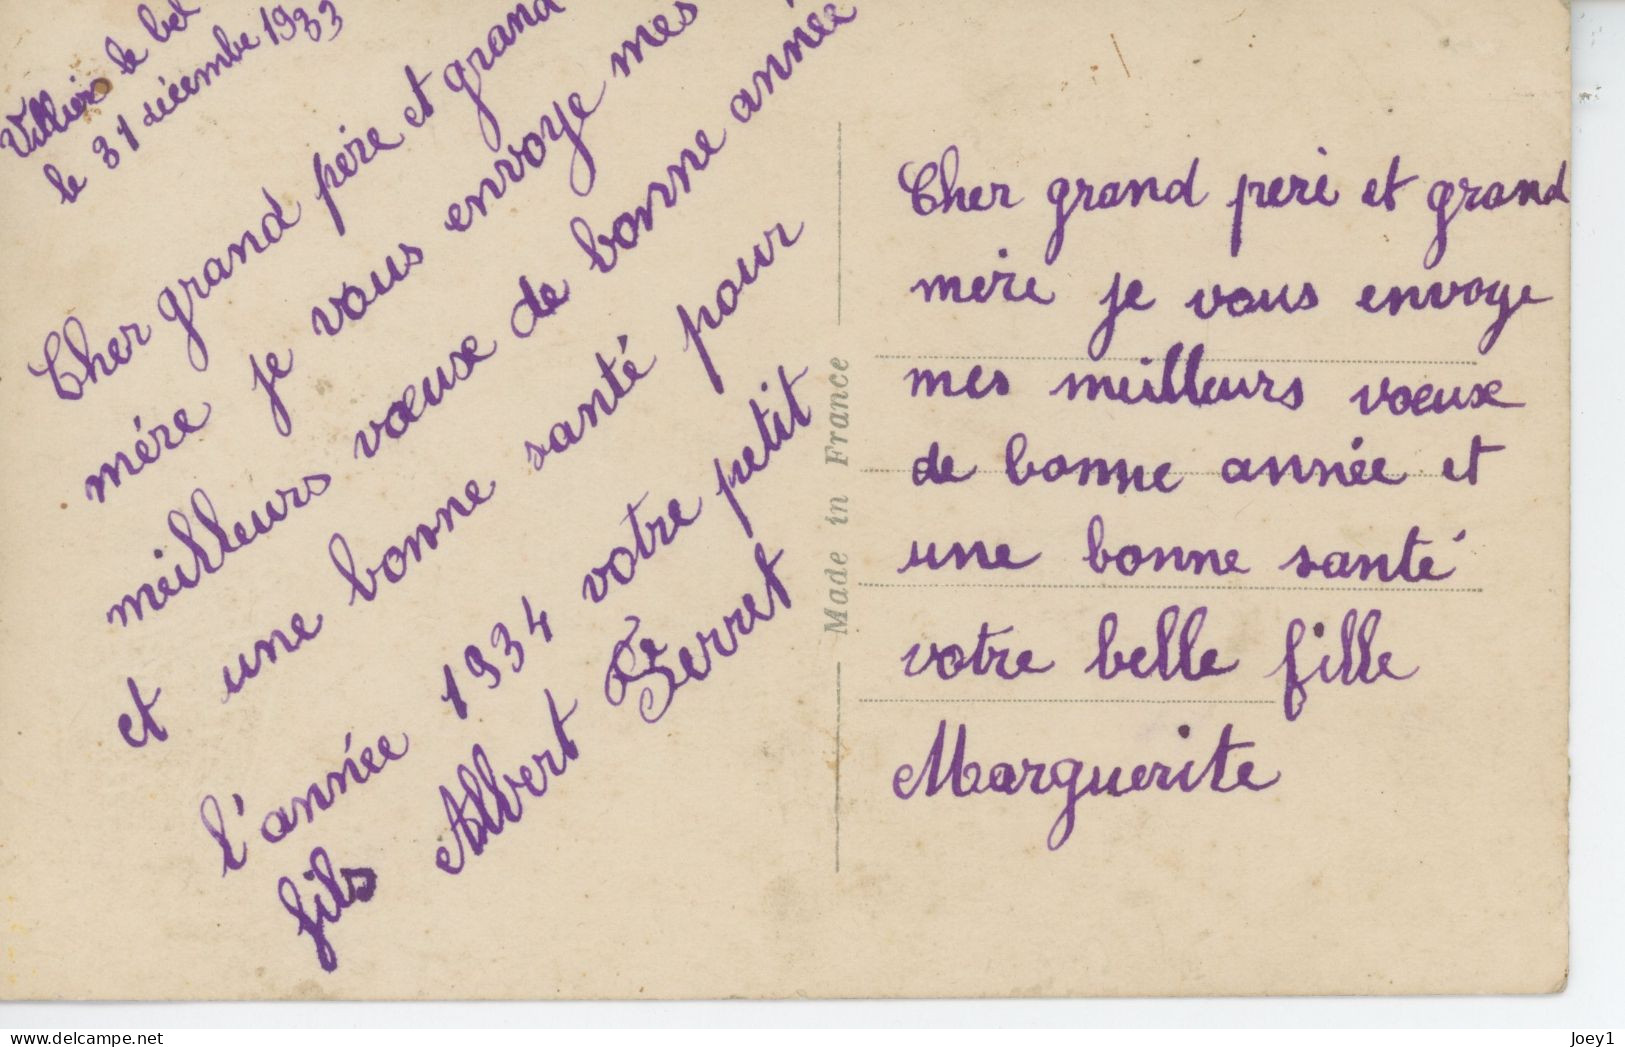 Villiers le bel
le 31 décembe 1933
Cher grand pére et grand
mére je vous envoye mes
meilleurs vœuxe de bonne année
et une bonne santé pour
l'année 1934 votre petit
fils Albert Le
Serret
Made in France
Cher grand pere et grand
mére je vous envoye
mes meilleurs vœuxe
de bonne année et
une bonne santé
votre belle fille
Marguerite
Joey1